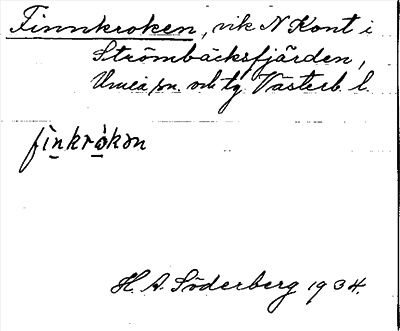 Finnkroken, vik N Kont i
Strömbäcksfjärden,
Umeå sn. och tg. Västerb. l.
fìnkrò̱kən
H. A. Söderberg 1934.